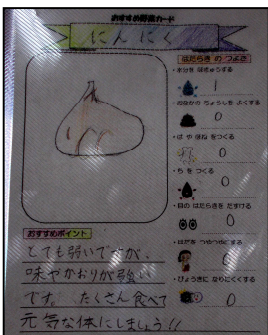 おすすめ野菜カード
にんにく
はたらき の つよさ
・水分を ほきゅうする
1
・おなかの ちょうしを よくする
0
・は や ほね をつくる
0
・ち を つくる
0
・目の はたらきを たすける
0
・はだを つやつやにする
0
・びょうきに なりにくくする
0
おすすめポイント
とても弱いですが、
味やかおりが強い
です。たくさん食べて
元気な体にしましょう!!